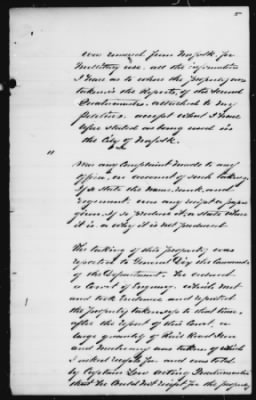 5
ever removed from Norfolk, for
Military use, all the information
I have as to where the property was
taken is the Reports, of the several
Quartermasters, attached to my
petition, except what I have
before stated as being used in
the City of Norfolk.
"
Was any Complaint made to any
officer, on account of such taking.
If so state the name, rank, and
regiment. Was any receipt or paper
given, if so produce it, or state where
it is, or why it is not produced.
The taking of this property was
reported to General Dix the Commander
of the Department. He ordered
a Court of Enquiry, which met
and took Evidence and reported
the property taken up to that time,
after the report of this Court, a
large quantity of Rail Road Iron
and machinery was taken, of which
I asked receipts for and was told
by Captain Law acting Quartermaster
that he could not receipt for the property